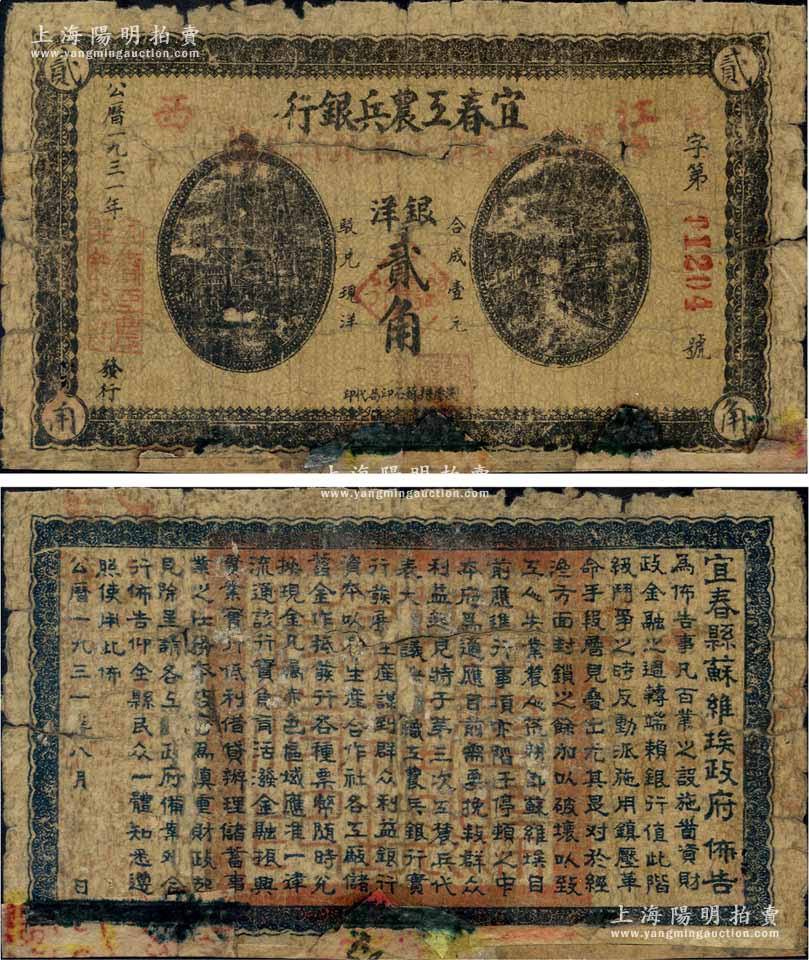 上海陽明拍賣
www.yangmingauction.com
貳
貳
行銀兵農工春宜
西
江
公曆一九三一年
發行
字第
11204
號
洋銀
貳角
合成壹元
驳兑現洋
角
角
上海陽明拍賣
www.yangmingauction.com
宜春縣蘇維埃政府佈告
為佈告事凡百業之設施啚資財
政金融之週轉端賴銀行值此階
級鬥爭之時反動派施用鎮壓革
命手段層見叠出尤其是对於經
濟方面封鎖之餘加以破壞以致
工人失業農人蘇維埃目
前應進行事項亦陷于停頓之中
本府為適應目前需要挽救群众
利益起見特于第三次工農兵代
表大議工農兵銀行實
行發展生產謀到群众利益銀行
資本以生產合作社各工厰儲
蓄金作抵發行各種票幣随時兑
換現金凡屬赤色區域應准一律
流通該行實負有活潑金融振興
實業實行低利借貸辦理儲蓄事
業之仕為慎重財政起
見除呈請各政府備案外合
行佈告仰全縣民众一體知悉遵
照使用此佈
公曆一九三一年八月 日
上海陽明拍賣
www.yangmingauction.com